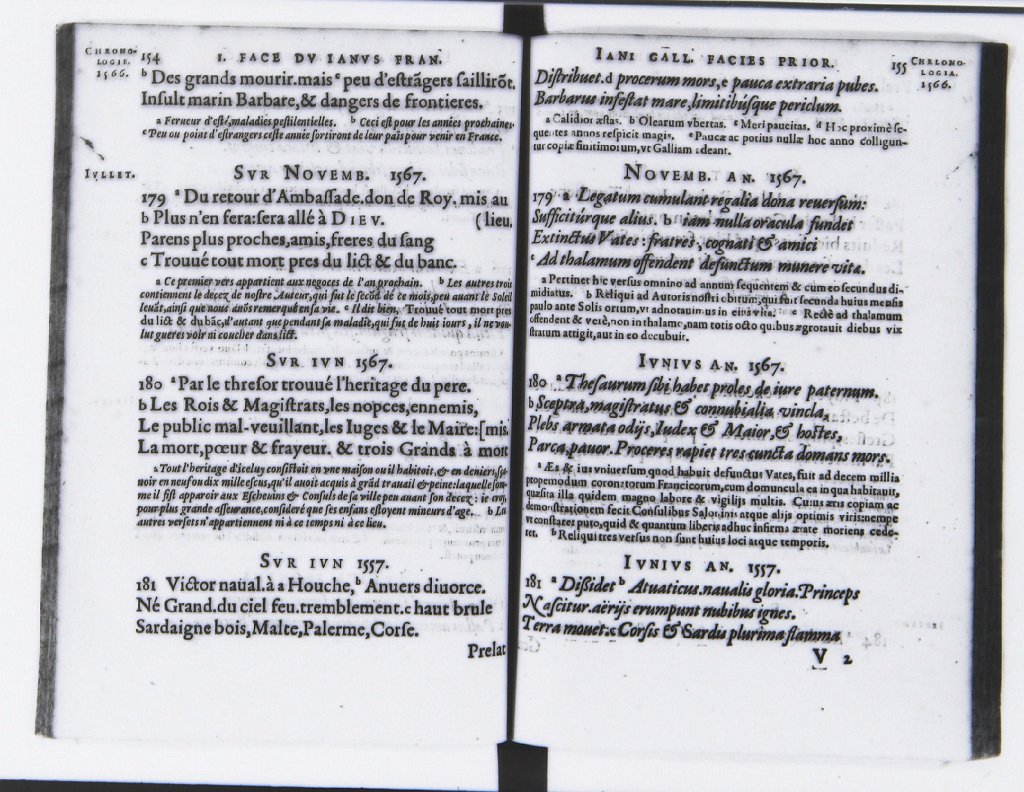 CHRONO-
LOGIE.
1566.
154 I. FACE DV IANVS FRAN.
b Des grands mourir.mais c peu d'estrãgers saillirõt.
Insult marin Barbare,& dangers de frontieres.
a Ferueur d'esté,maladies pestilentielles. b Ceci est pour les années prochaines.
c Peu ou point d'estrangers ceste année sortiront de leur païs pour venir en France.
IVLLET.
SVR NOVEMB. 1567.
179 a Du retour d'Ambassade.don de Roy. mis au
b Plus n'en fera:sera allé à DIEV. (lieu.
Parens plus proches,amis,freres du sang
c Trouué tout mort pres du lict & du banc.
a Ce premier vers appartient aux negoces de l'an prochain. b Les autres trois
contiennent le decez de nostre Auteur,qui fut le secõd de ce mois,peu auant le Soleil
leuãt,ainsi que nous auõs remerqué en sa vie. c Il dit bien, Trouué tout mort pres
du lict & du bãc,d'autant que pendant sa maladie,qui fut de huit iours, il ne vou-
lut gueres voir ni coucher dans lict.
SVR IVN 1567.
180 a Par le thresor trouué l'heritage du pere.
b Les Rois & Magistrats,les nopces,ennemis,
Le public mal-veuillant,les Iuges & le Maire:[mis.
La mort,pœur & frayeur. & trois Grands à mort
a Tout l'heritage d'iceluy consistoit en vne maison ou il habitoit,& en deniers,sa-
uoir en neuf ou dix mille escus,qu'il auoit acquis à grãd trauail & peine:laquelle som-
me il fist apparoir aux Escheuins & Consuls de sa ville peu auant son decez: ie croy
pour plus grande asseurance,consideré que ses enfans estoyent mineurs d'age. b Les
autres versets n'appartiennent ni à ce temps ni à ce lieu.
SVR IVN 1557.
181 Victor naual.à a Houche, b Anuers diuorce.
Né Grand.du ciel feu.tremblement.c haut brule
Sardaigne bois,Malte,Palerme,Corse.
Prelat
IANI GALL. FACIES PRIOR. 155
CHRONO-
LOGIA.
1566.
Distribuet.d procerum mors, e pauca extraria pubes.
Barbarus infestat mare,limitibúsque periclum.
a Calidior æstas. b Olearum vbertas. c Meri paucitas. d Hoc proximè se-
quentes annos respicit magis. e Paucæ ac potius nullæ hoc anno colligun-
tur copiæ finitimorum,vt Galliam adeant.
NOVEMB. AN. 1567.
179 a Legatum cumulant regalia dona reuersum:
Sufficitúrque alius. b iam nulla oracula fundet
Extinctus Vates: fratres, cognati & amici
c Ad thalamum offendent defunctum munere vita.
a Pertinet hic versus omnino ad annum sequentem & cum eo secundus di-
midiatus. b Reliqui ad Autoris nostri obitum,qui fuit secunda huius mensis
paulo ante Solis ortum,vt adnotauimus in eius vita. c Rectè ad thalamum
offendent & verè,non in thalamo,nam totis octo quibus ægrotauit diebus vix
stratum attigit,aut in eo decubuit.
IVNIVS AN. 1567.
180 a Thesaurum sibi habet proles de iure paternum.
b Sceptra,magistratus & connubialia vincla,
Plebs armata odijs,Iudex & Maior,& hostes,
Parca,pauor. Proceres rapiet tres cuncta domans mors.
a Æs & ius vniuersum,quod habuit defunctus Vates, fuit ad decem millia
propemodum coronatorum Francicorum,cum domuncula ea in qua habitauit,
quæsita illa quidem magno labore & vigilijs multis. Cuius æris copiam ac
demonstrationem fecit Consulibus Salorinis atque alijs optimis viris:nempe
vt constaret puto,quid & quantum liberis adhuc infirma ætate moriens cede-
ret. b Reliqui tres versus non sunt huius loci atque temporis.
IVNIVS AN. 1557.
181 a Dissidet b Atuaticus.naualis gloria.Princeps
Nascitur.aërijs erumpunt nubibus ignes.
Terra mouet.c Corsis & Sardis plurima flamma
V 2